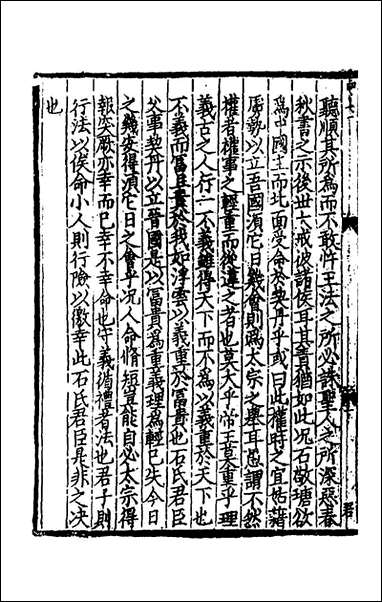 聽順其所為而不敢忤王法之所必誅聖人之所深惡春
秋書之示後世大戒彼諸侯耳其責猶如此况石敬瑭欲
為中國主而北面受命於契丹乎或曰此權時之宜姑藉
虜勢以立吾國須它日幾會則為太宗之舉耳愚謂不然
權者權事之輕重而從違之者也莫大乎帝王莫重乎理
義古之人行一不義雖得天下而不為以義重於天下也
不義而富且貴於我如浮雲以義重於富貴也石氏君臣
父事契丹以立晉國是以富貴為重義理為輕已失今日
之幾安得須它日之會乎况人命脩短豈能自必太宗得
報突厥亦幸而已幸不幸命也守義循禮者法也君子則
行法以俟命小人則行險以徼幸此石氏君臣是非之决
也